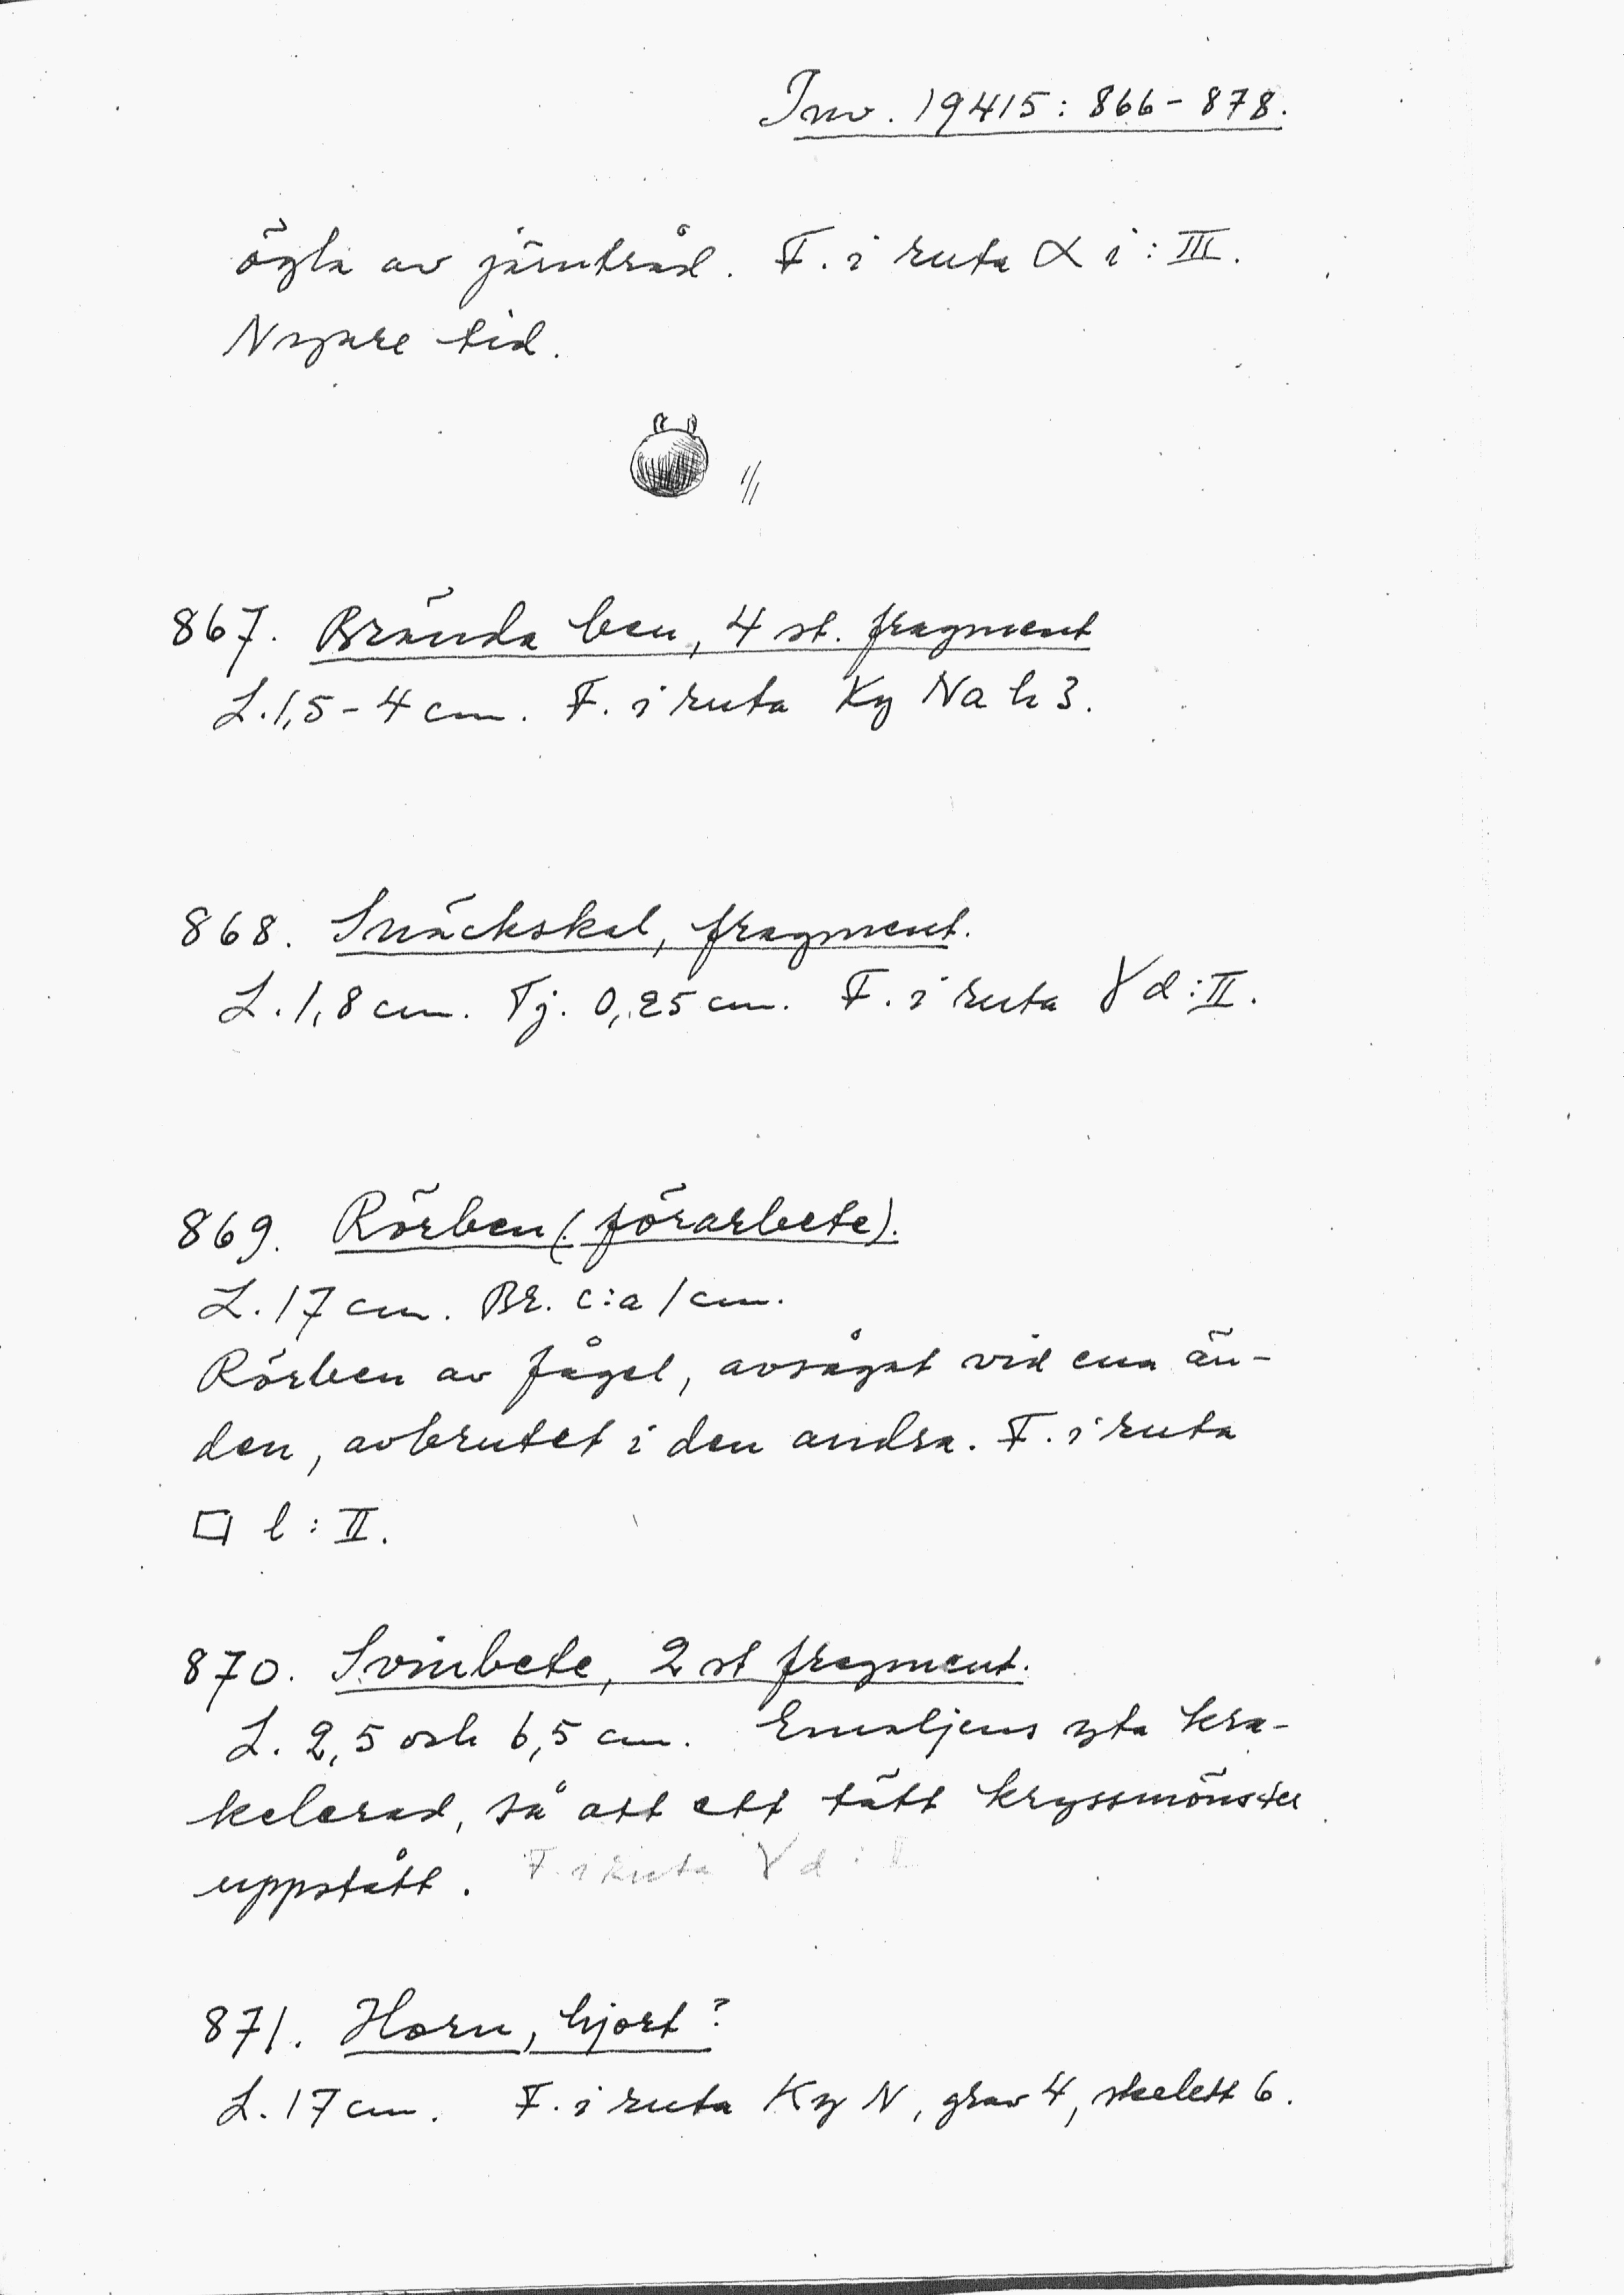 Inv. 19415: 866-878.
ögla av järntråd. F. i ruta α i: III.
Nyare tid.
1/1
867. Brända ben, 4 st. fragment
L. 1,5-4 cm. F. i ruta Ky Na h 3.
868. Snäckskal, fragment.
L. 1,8 cm. Tj. 0,25 cm. F. i ruta γ d: II.
869. Rörben (förarbete).
L. 17 cm. Br. c:a 1 cm.
Rörben av fågel, avsågat vid ena än-
den, avbrutet i den andra. F. i ruta
□ l: II.
870. Svinbete, 2 st fragment.
L. 2,5 och 6,5 cm. Emaljens yta kra-
kelerad, så att ett tätt kryssmönster
uppstått. F. i ruta γ d: I
871. Horn, hjort?
L. 17 cm. F. i ruta Ky N, grav 4, skelett 6.